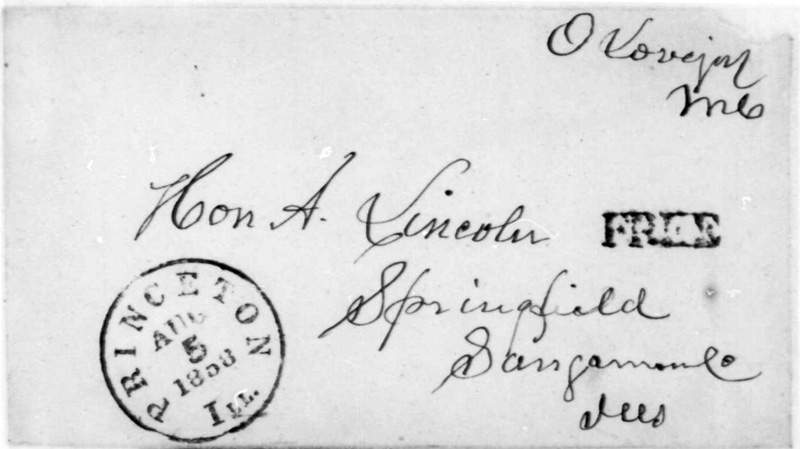 O Lovejoy
MC
Hon A. Lincoln
FREE
Springfield
Sangamon Co
Ills
PRINCETON
AUG
5
1858
ILL.